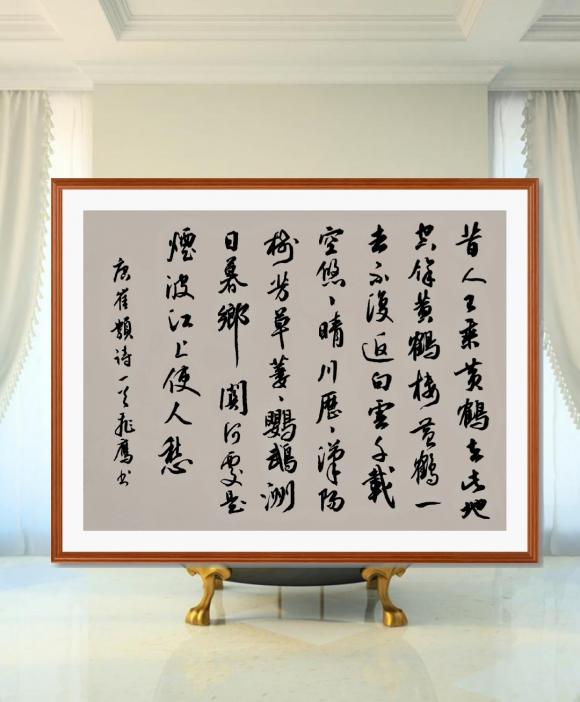 昔人已乘黄鶴去此地
空餘黄鶴楼黄鶴一
去不復返白雲千載
空悠、晴川歷、漢陽
樹芳草萋、鸚鵡洲
日暮鄉關何處是
煙波江上使人愁
唐崔顥詩一首飛鷹书